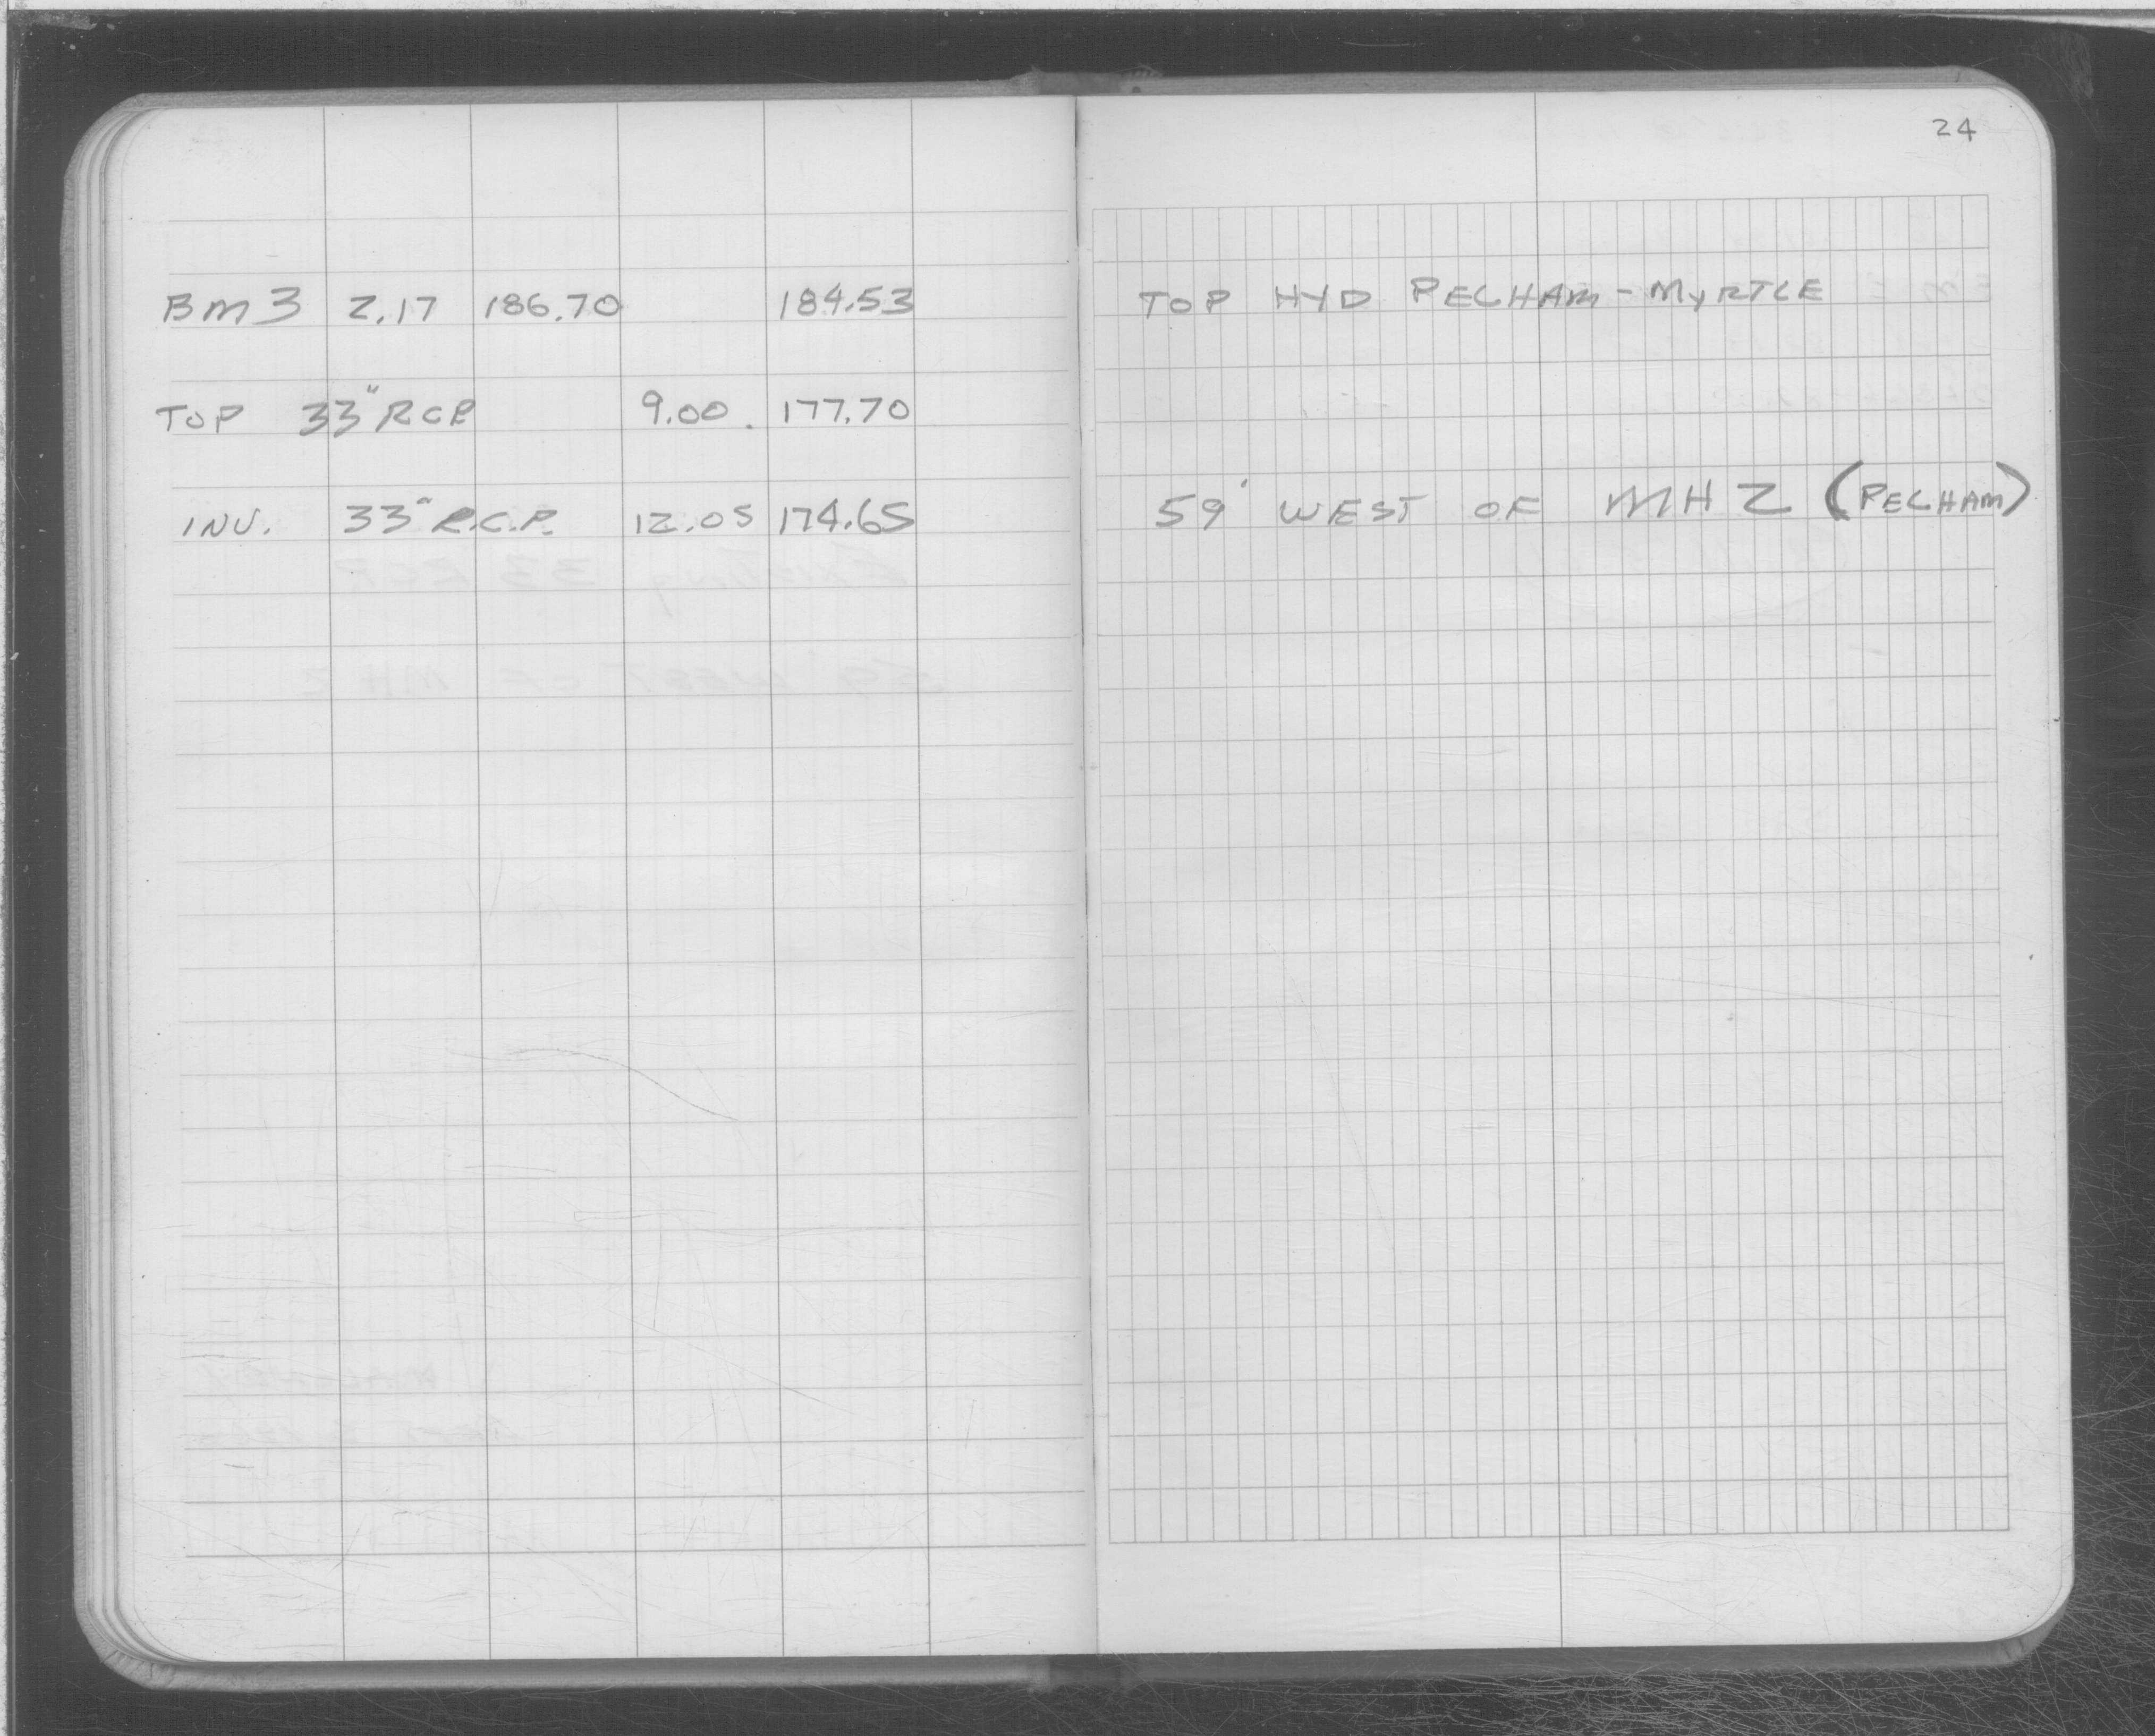 24
BM 3 2.17 186.70 184.53 TOP HYD PELHAM - MYRTLE
TOP 33" RCP 9.00 177.70
INV. 33" R.C.P. 12.05 174.65 59' WEST OF MH 2 (PELHAM)